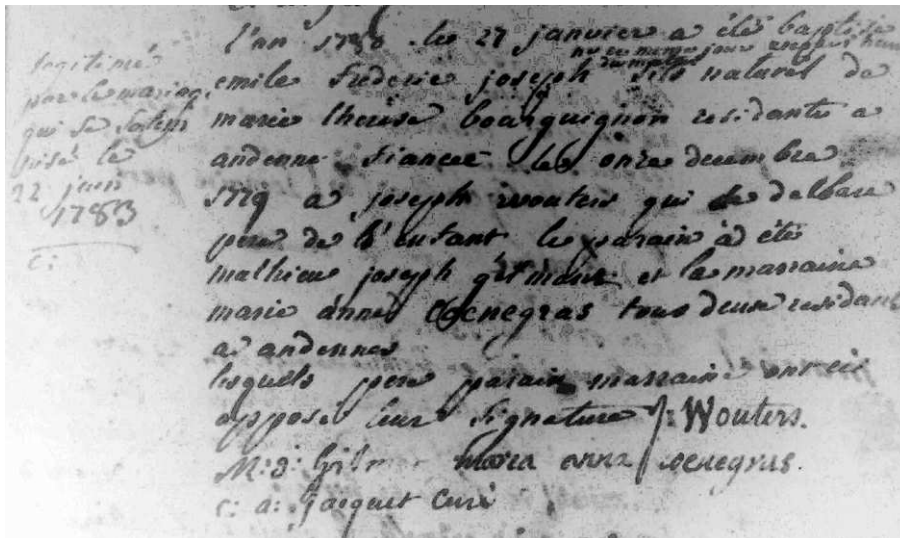 legitimé
par le mariage
qui se
le
22 juin
1783
c:
l'an 1788 le 27 janvier a été baptisé
né ce meme jour
emile frederic joseph fils naturel de
marie therese bourguignon residante a
andenne fiancee le onze decembre
1779 a joseph wouters qui se
pere de l'enfant le parain à été
mathieu joseph gilmair et la marraine
marie anne oenegras tous deux residant
a andennes
lesquels pere parain marraine ont ici
apposé leur signature J: Wouters.
M: J: maria anna oenegras.
c: a: Jacquet Curé